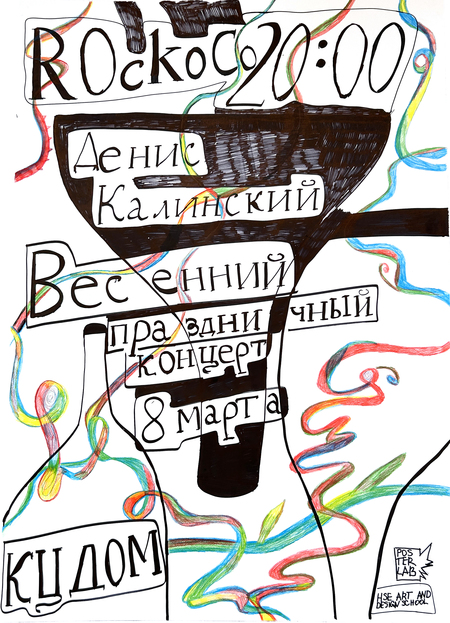 ROcKoCo 20:00
Денис
Калинский
Весенний
праздничный
концерт
8 марта
КЦ ДОМ
POS
TER
LAB
HSE ART AND
DESIGN SCHOOL